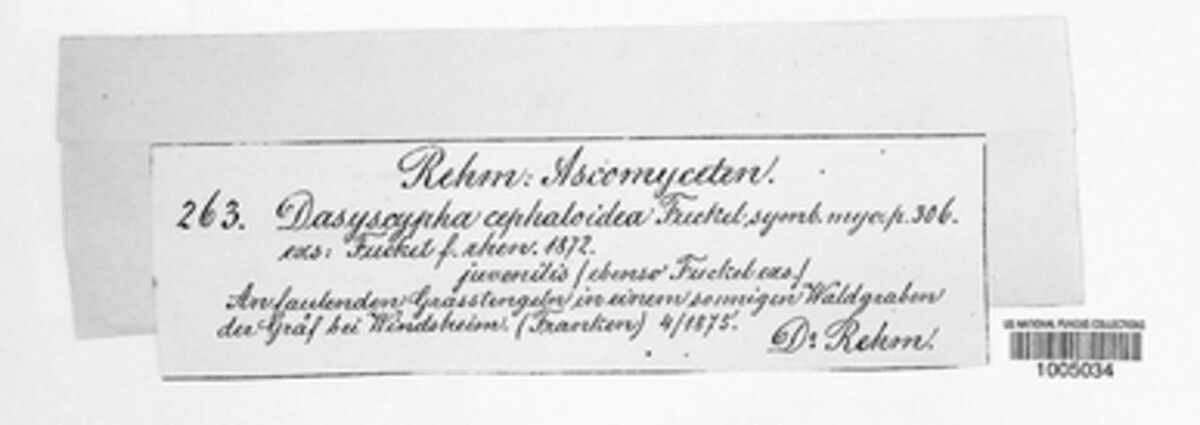 Rehm: Ascomyceten.
263. Dasyscypha cephaloidea Fuckel, symb. myc. p. 306.
exs: Fuckel f. rhen. 1872.
juvenilis /ebenso Fuckel exs./
An faulenden Grasstengeln in einem sonnigen Waldgraben
der Gräf bei Windsheim. (Franken) 4/1875.
Dr Rehm.
US NATIONAL FUNGUS COLLECTIONS
1005034